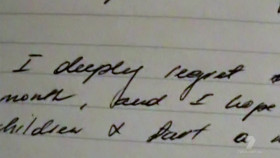 I deeply regret
month, and I hope
children & start a